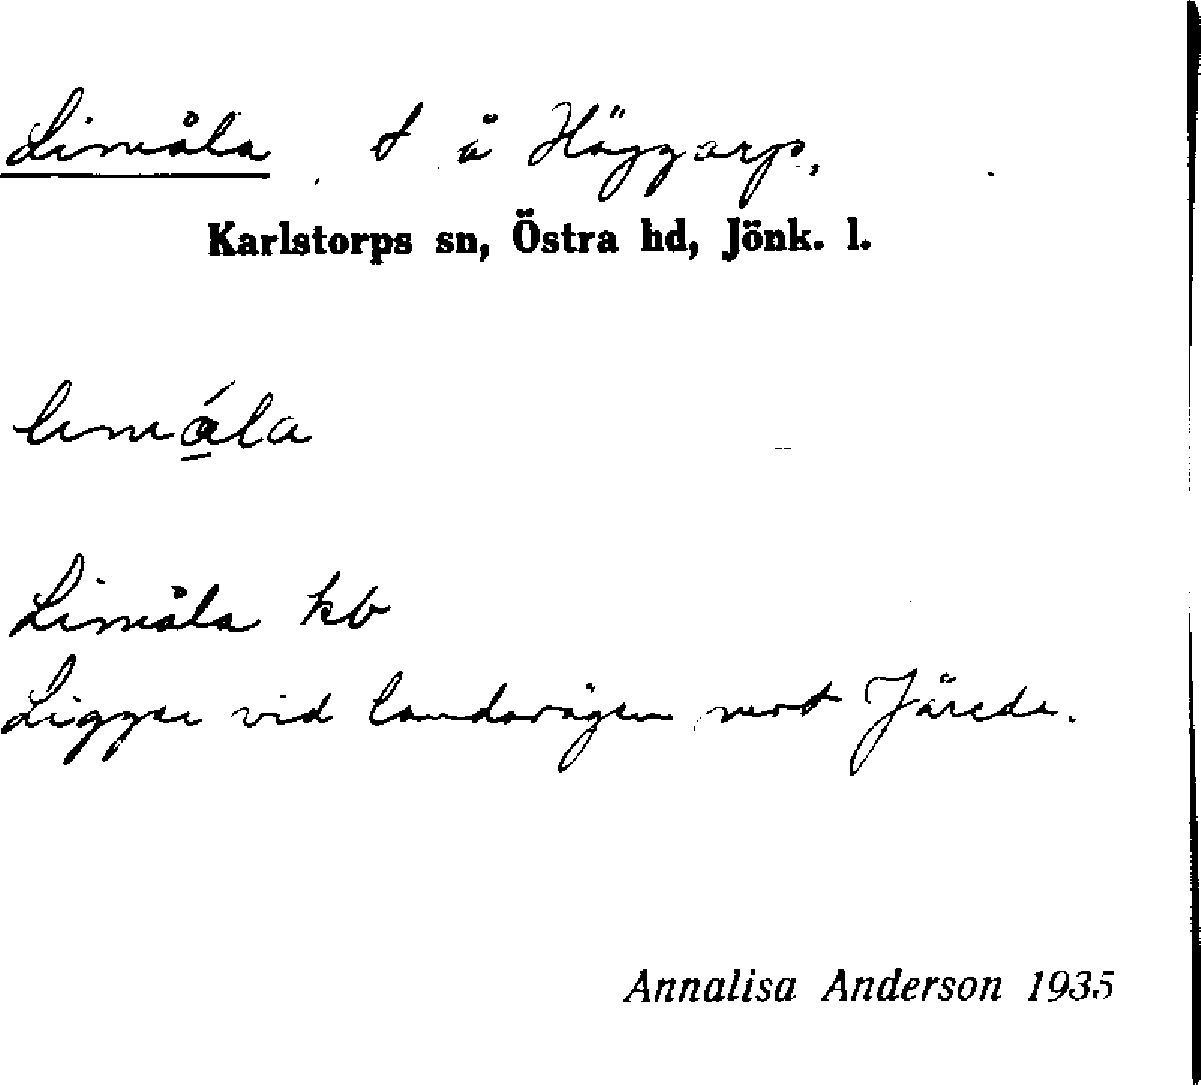 Limåla t å Häggarp,
Karlstorps sn, Östra hd, Jönk. l.
Limåla kb
Ligger vid landsvägen mot Järeda.
Annalisa Anderson 1935